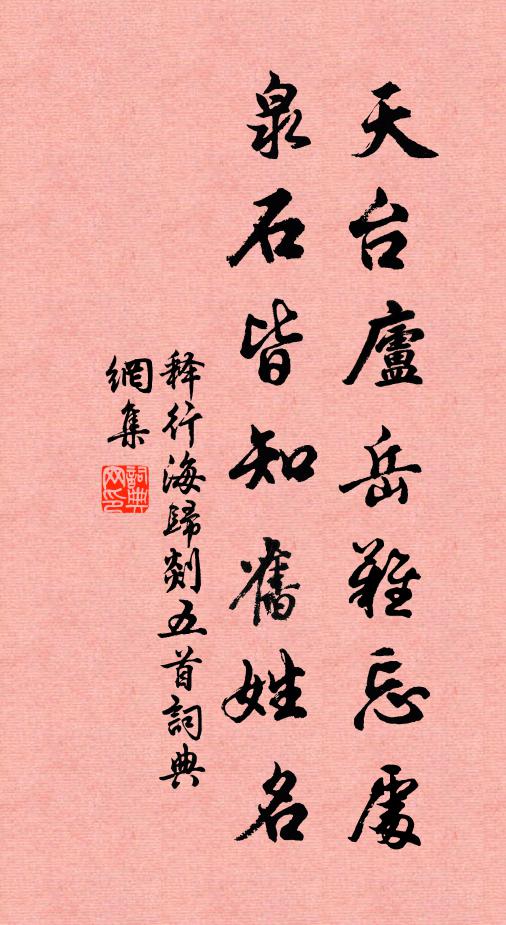 天台廬岳難忘處
泉石皆知舊姓名
释行海歸剡五首詞典
網集
詞典
网印